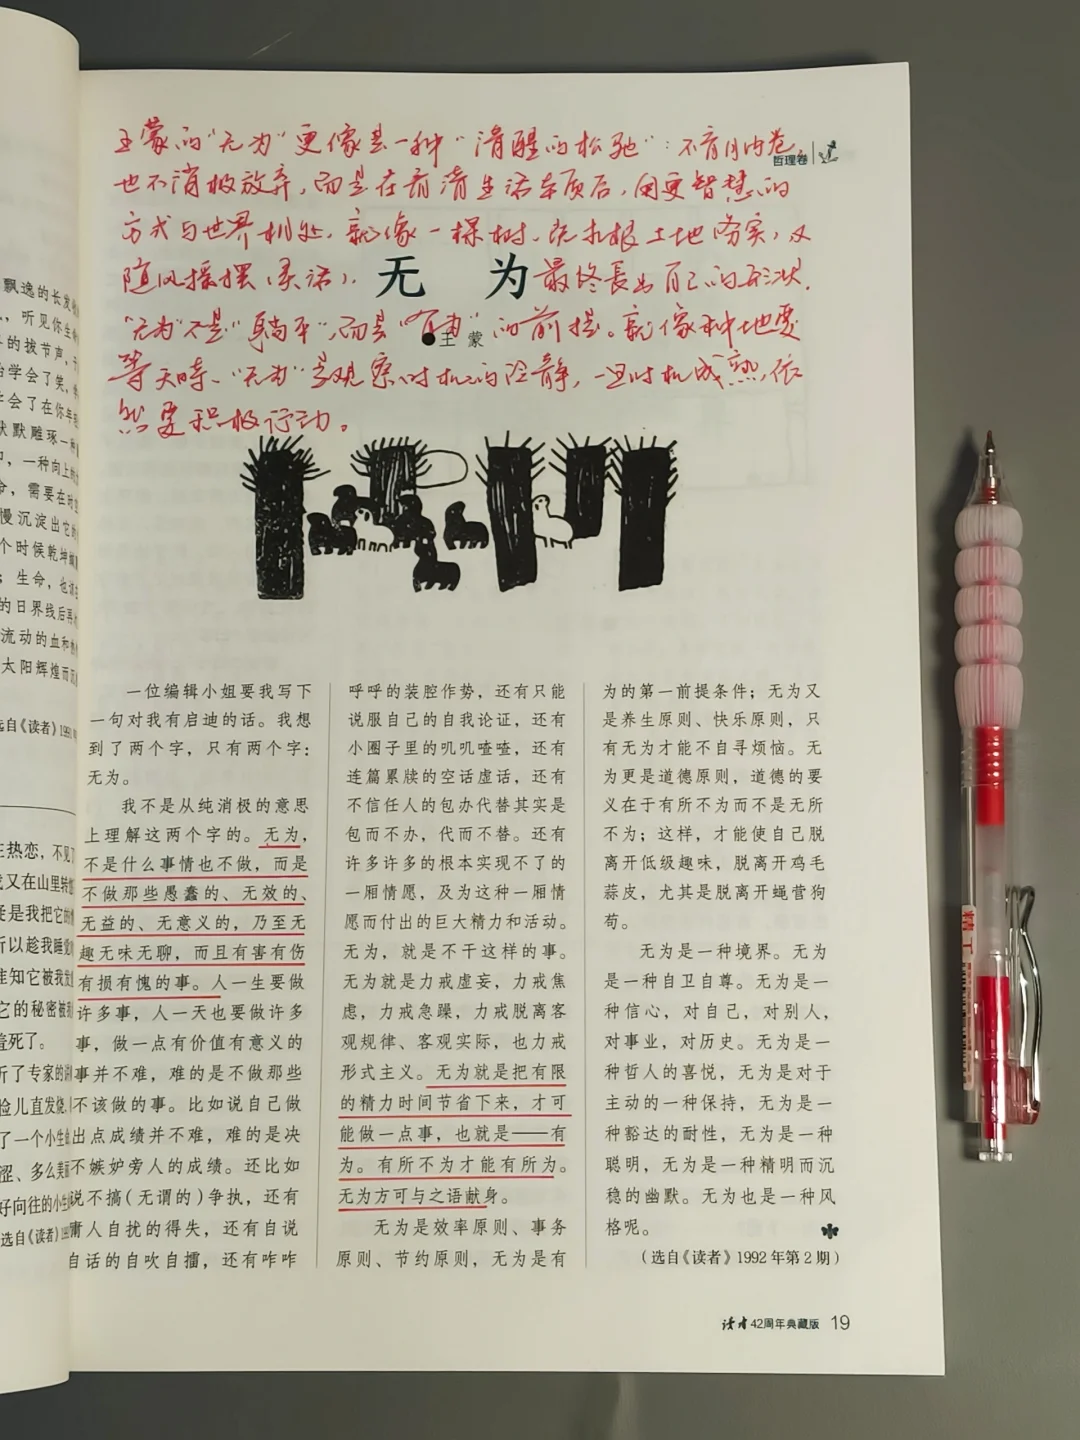 王蒙的“无为”更像是一种“清醒的松弛”:不盲目内卷,
哲理卷
也不消极放弃,而是在看清生活本质后,用更智慧的
方式与世界相处,就像一棵树,既扎根土地(务实),又
随风摇摆(灵活),
无 为
最终长出自己的形状.
“无为”不是“躺平”,而是“有为”的前提。就像种地要
●王 蒙
等天时、“无为”是观察时机的冷静,一旦时机成熟,依
然要积极行动。
飘逸的长发
听见你生命
的拔节声,
学会了笑,
学会了在你年
默默雕琢一种
一种向上的
命,需要在时
慢沉淀出它的
个时候乾坤
生命,也
的日界线后再
流动的血和
太阳辉煌而
选自《读者》199
热恋,不见了
又在山里转
是我把它的
所以趁我睡觉
谁知它被我发
它的秘密被
死了。
听了专家的
脸儿直发烧,
了一个小生
涩、多么美
好向往的小生
选自《读者》
一位编辑小姐要我写下
一句对我有启迪的话。我想
到了两个字,只有两个字:
无为。
我不是从纯消极的意思
上理解这两个字的。无为,
不是什么事情也不做,而是
不做那些愚蠢的、无效的、
无益的、无意义的,乃至无
趣无味无聊,而且有害有伤
有损有愧的事。人一生要做
许多事,人一天也要做许多
事,做一点有价值有意义的
事并不难,难的是不做那些
不该做的事。比如说自己做
出点成绩并不难,难的是决
不嫉妒旁人的成绩。还比如
说不搞(无谓的)争执,还有
庸人自扰的得失,还有自说
自话的自吹自擂,还有咋咋
呼呼的装腔作势,还有只能
说服自己的自我论证,还有
小圈子里的叽叽喳喳,还有
连篇累牍的空话虚话,还有
不信任人的包办代替其实是
包而不办,代而不替。还有
许多许多的根本实现不了的
一厢情愿,及为这种一厢情
愿而付出的巨大精力和活动。
无为,就是不干这样的事。
无为就是力戒虚妄,力戒焦
虑,力戒急躁,力戒脱离客
观规律、客观实际,也力戒
形式主义。无为就是把有限
的精力时间节省下来,才可
能做一点事,也就是——有
为。有所不为才能有所为。
无为方可与之语献身。
无为是效率原则、事务
原则、节约原则,无为是有
为的第一前提条件;无为又
是养生原则、快乐原则,只
有无为才能不自寻烦恼。无
为更是道德原则,道德的要
义在于有所不为而不是无所
不为;这样,才能使自己脱
离开低级趣味,脱离开鸡毛
蒜皮,尤其是脱离开蝇营狗
苟。
无为是一种境界。无为
是一种自卫自尊。无为是一
种信心,对自己,对别人,
对事业,对历史。无为是一
种哲人的喜悦,无为是对于
主动的一种保持,无为是一
种豁达的耐性,无为是一种
聪明,无为是一种精明而沉
稳的幽默。无为也是一种风
格呢。
(选自《读者》1992年第2期)
读者 42周年典藏版 19
精工